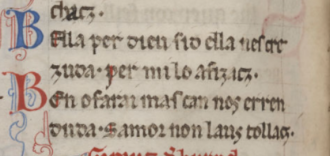 chatz.
Bella per dieu si o ella uescre
zuda. per mi lo afizatz.
Ben o farai mas can nos crren
duda. Samor non laus tollatz.